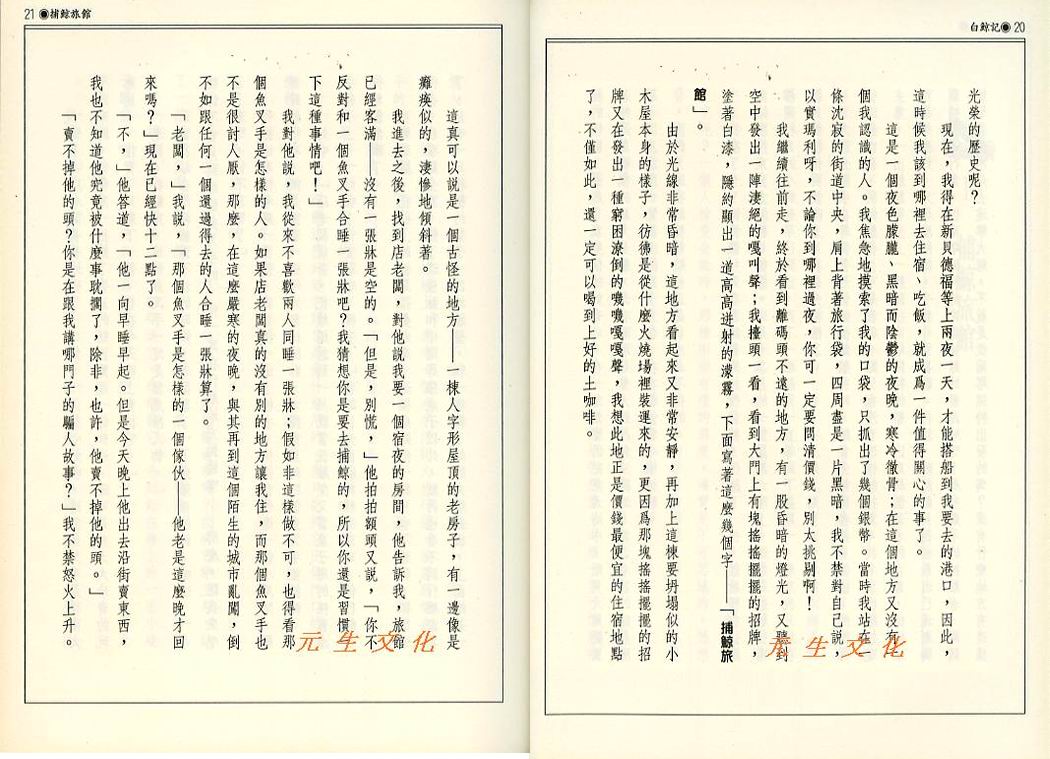 白鯨記◉20
光榮的歷史呢？
現在，我得在新貝德福等上兩夜一天，才能搭船到我要去的港口，因此，
這時候我該到哪裡去住宿、吃飯，就成爲一件值得關心的事了。
這是一個夜色朦朧、黑暗而陰鬱的夜晚，寒冷徹骨；在這個地方又沒有一
個我認識的人。我焦急地摸索了我的口袋，只抓出了幾個銀幣。當時我站在一
條沈寂的街道中央，肩上背著旅行袋，四周盡是一片黑暗，我不禁對自己說，
以實瑪利呀，不論你到哪裡過夜，你可一定要問清價錢，別太挑剔啊！
我繼續往前走，終於看到離碼頭不遠的地方，有一股昏暗的燈光，又聽到
空中發出一陣淒絕的嘎叫聲；我擡頭一看，看到大門上有塊搖搖擺擺的招牌，
塗著白漆，隱約顯出一道高高迸射的濛霧，下面寫著這麼幾個字——「捕鯨旅
館」。
由於光線非常昏暗，這地方看起來又非常安靜，再加上這棟要坍塌似的小
木屋本身的樣子，彷彿是從什麼火燒場裡裝運來的，更因爲那塊搖搖擺擺的招
牌又在發出一種窮困潦倒的嘰嘰嘎嘎聲，我想此地正是價錢最便宜的住宿地點
了，不僅如此，還一定可以喝到上好的土咖啡。
元生文化
21◉捕鯨旅館
這真可以說是一個古怪的地方——一棟人字形屋頂的老房子，有一邊像是
癱瘓似的，淒慘地傾斜著。
我進去之後，找到店老闆，對他說我要一個宿夜的房間，他告訴我，旅館
已經客滿——沒有一張牀是空的。「但是，別慌，」他拍拍額頭又說，「你不
反對和一個魚叉手合睡一張牀吧？我猜想你是要去捕鯨的，所以你還是習慣
下這種事情吧！」
我對他說，我從來不喜歡兩人同睡一張牀；假如非這樣做不可，也得看那
個魚叉手是怎樣的人。如果店老闆真的沒有別的地方讓我住，而那個魚叉手也
不是很討人厭，那麼，在這麼嚴寒的夜晚，與其再到這個陌生的城市亂闖，倒
不如跟任何一個還過得去的人合睡一張牀算了。
「老闆，」我說，「那個魚叉手是怎樣的一個傢伙——他老是這麼晚才回
來嗎？」現在已經快十二點了。
「不，」他答道，「他一向早睡早起。但是今天晚上他出去沿街賣東西，
我也不知道他究竟被什麼事耽擱了，除非，也許，他賣不掉他的頭。」
「賣不掉他的頭？你是在跟我講哪門子的騙人故事？」我不禁怒火上升。
元生文化